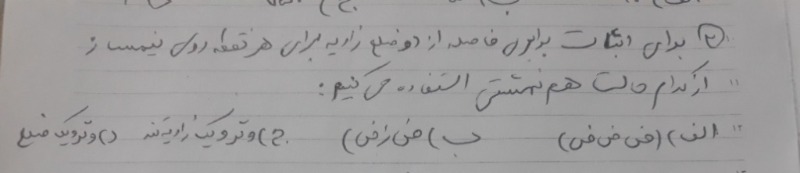 ۲) برای اثبات برابری فاصله از دو ضلع زاویه برای هر نقطه روی نیمساز
از کدام حالت هم نهشتی استفاده می کنیم:
الف) (ض ض ض) ب) (ض ز ض) ج) وتر و یک زاویه تند د) وتر و یک ضلع